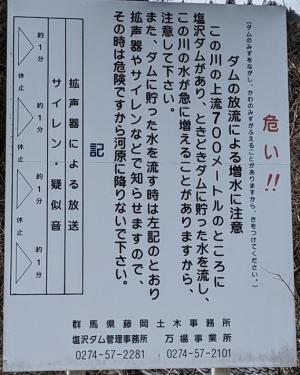 危い!!
(ダムのみずをながし、かわのみずがふえることがありますから、きをつけてください。)
ダムの放流による増水に注意
この川の上流700メートルのところに
塩沢ダムがあり、ときどきダムに貯った水を流し、
この川の水が急に増えることがありますから、
注意して下さい。
また、ダムに貯った水を流す時は左記のとおり
拡声器やサイレンなどで知らせますので、
その時は危険ですから河原に降りないで下さい。
記
拡声器による放送
サイレン・疑似音
約1分
休止
約1分
休止
約1分
休止
約1分
群馬県藤岡土木事務所
塩沢ダム管理事務所 万場事業所
0274-57-2281 0274-57-2101